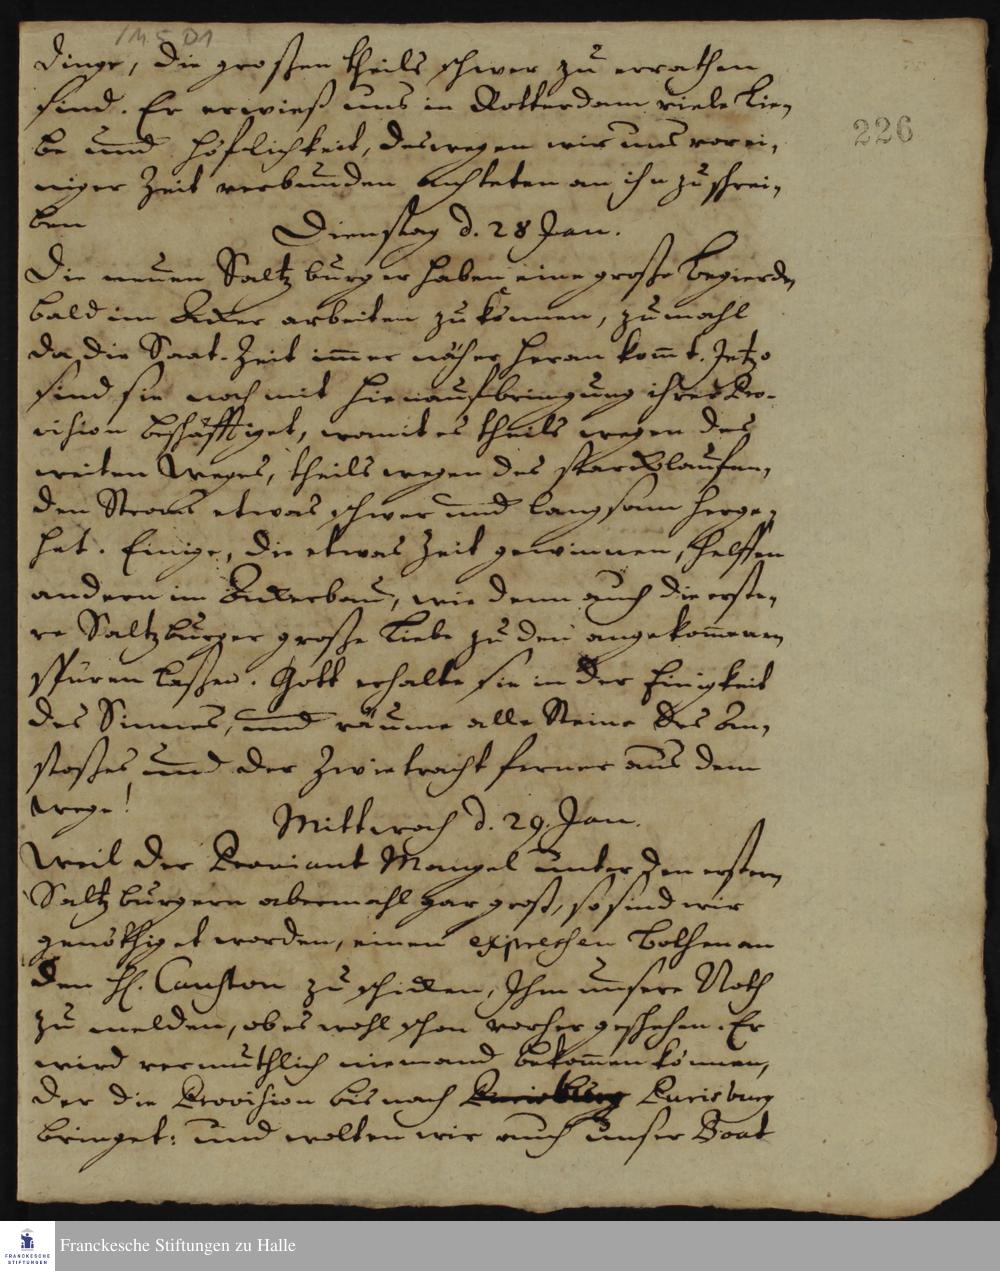 /M 5 D1
226
dinge, die großen theils schwer zu errathen
sind. Er erwieß uns in Rotterdam viele Lie,
be und Höflichkeit, deswegen wir uns vor ei,
niger Zeit verbunden achteten an ihn zu schrei,
ben
Dienstag d. 28 Jan.
Die neuen Saltzburger haben eine große Begierde
bald im Acker arbeiten zu können, zumahl
da die Saat-Zeit immer näher heran kommt. Jetzo
sind sie noch mit Hinaufbringung ihrer Pro-
vision beschäfftiget, womit es theils wegen des
weiten Weges, theils wegen des starck lauffen,
den Stroms etwas schwer und langsam herge,
het. Einige, die etwas Zeit gewinnen, helffen
andern im Ackerbau, wie denn auch die erste,
re Saltzburger große Liebe zu den angekommenen
spüren laßen. Gott erhalte sie in der Einigkeit
des Sinnes, und räume alle Steine des An,
stoßes und der Zwietracht ferner aus dem
Wege!
Mittwoch d. 29. Jan.
Weil der Proviant Mangel unter den erstern
Saltzburgern abermahl gar groß, so sind wir
genöthiget worden, einen expressen Bothen an
den H. Causton zu schicken, Ihm unsere Noth
zu melden, ob es wohl schon vorher geschehen. Er
wird vermuthlich niemand bekommen können,
der die Provision bis nach Purisburg
bringet: und wolten wir auch unser Boat
Franckesche Stiftungen zu Halle
FRANCKESCHE
STIFTUNGEN